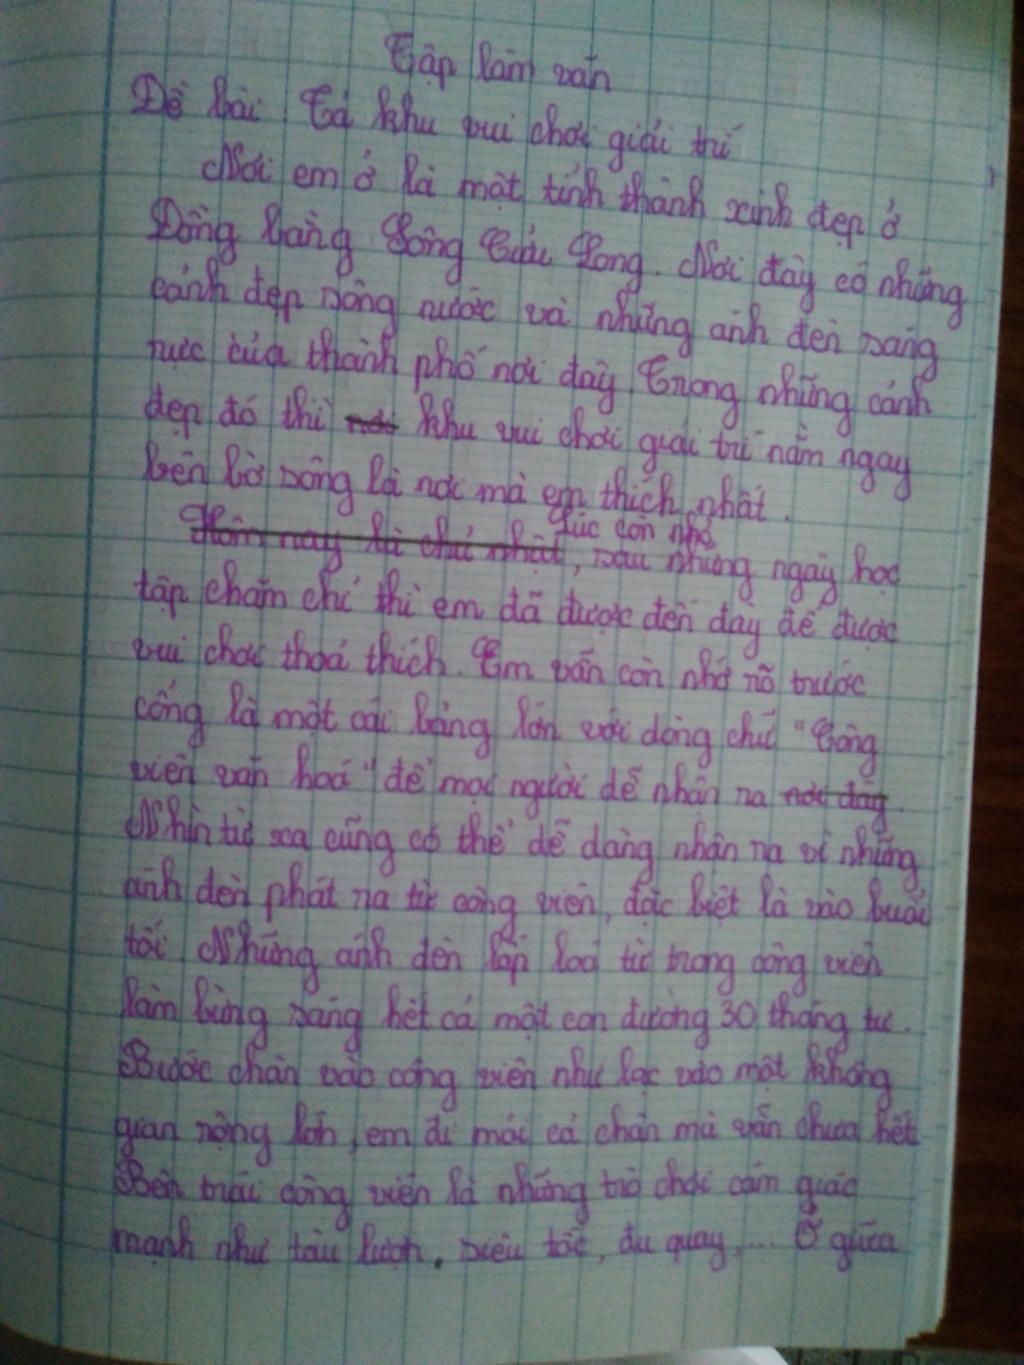 Tập làm văn
Đề bài: Tả khu vui chơi giải trí
Nơi em ở là một tỉnh thành xinh đẹp ở
Đồng bằng Sông Cửu Long. Nơi đây có những
cảnh đẹp sông nước và những ánh đèn sáng
rực của thành phố nơi đây. Trong những cảnh
đẹp đó thì nơi khu vui chơi giải trí nằm ngay
bên bờ sông là nơi mà em thích nhất.
Lúc còn nhỏ
Hôm nay là chủ nhật, sau những ngày học
tập chăm chỉ thì em đã được đến đây để được
vui chơi thoả thích. Em vẫn còn nhớ rõ trước
cổng là một cái bảng lớn với dòng chữ "Công
viên văn hoá" để mọi người dễ nhận ra nơi đây.
Nhìn từ xa cũng có thể dễ dàng nhận ra vì những
ánh đèn phát ra từ công viên, đặc biệt là vào buổi
tối. Những ánh đèn lấp loá từ trong công viên
làm bừng sáng hết cả một con đường 30 tháng tư.
Bước chân vào công viên như lạc vào một không
gian rộng lớn, em đi mỏi cả chân mà vẫn chưa hết.
Bên trái công viên là những trò chơi cảm giác
mạnh như tàu lượn, siêu tốc, đu quay,... Ở giữa